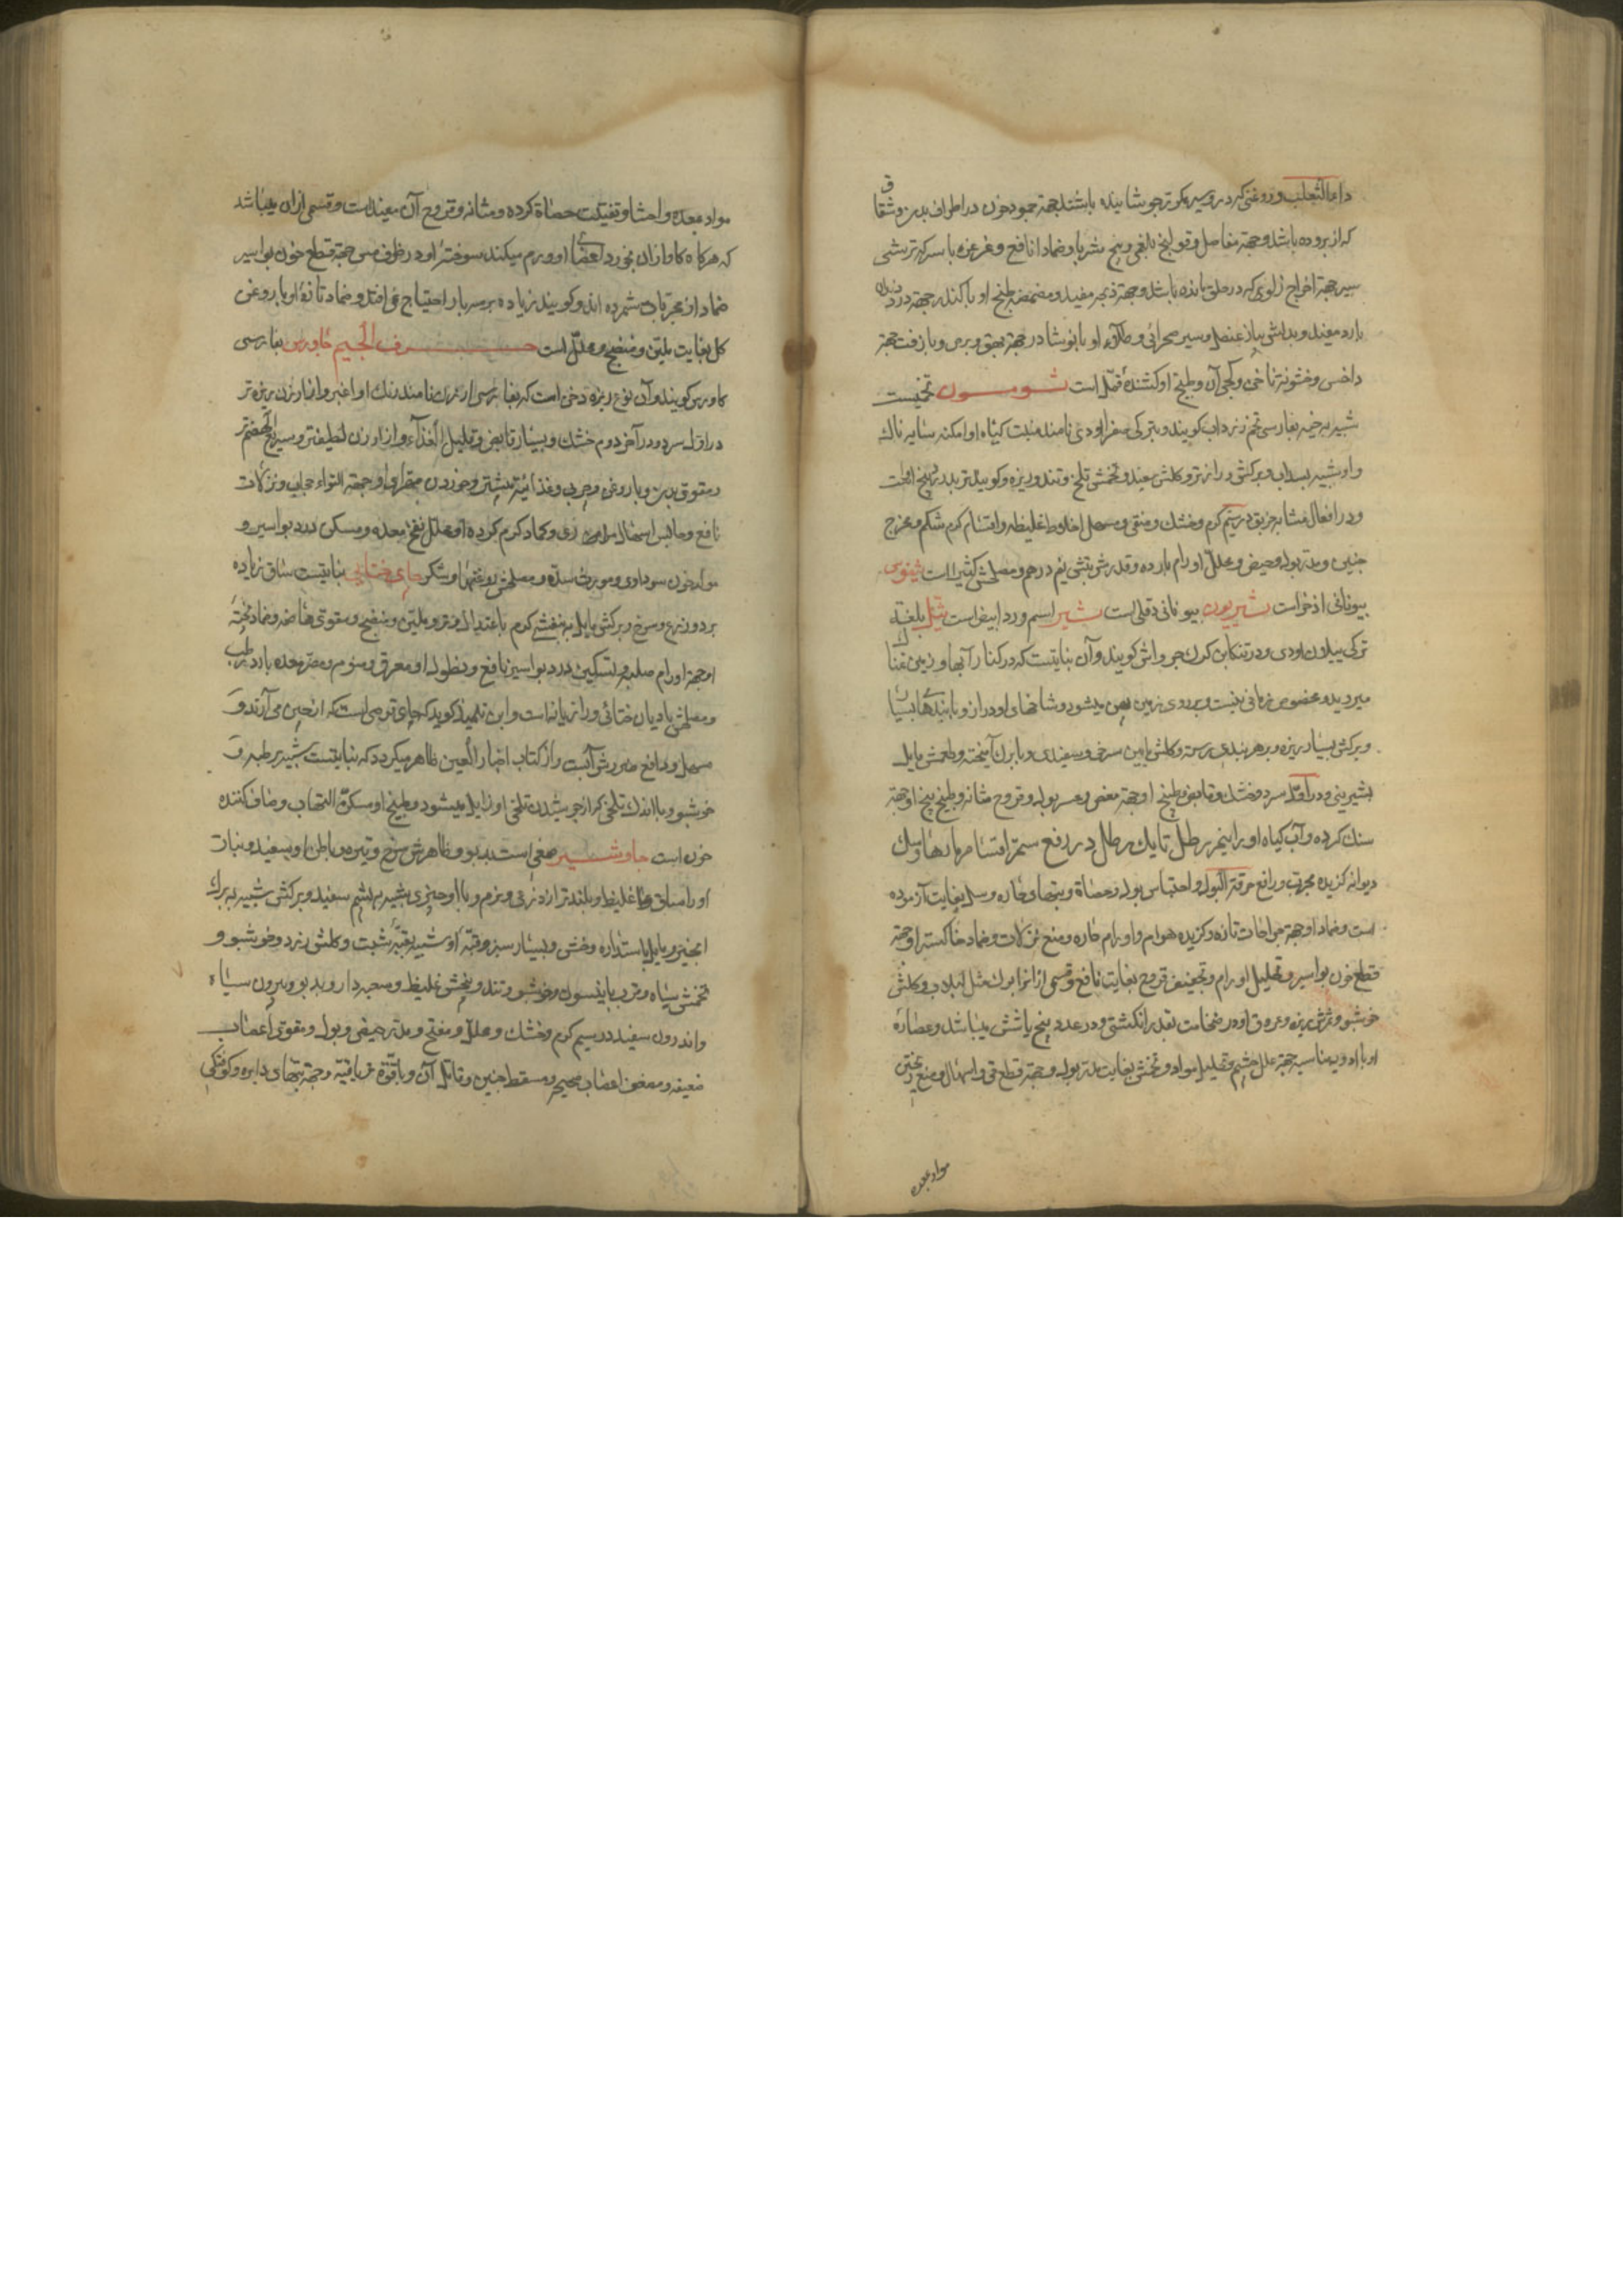 داءالثعلب و روغنی که در و سیر مکرر جوشانیده باشند جهة جمود خون در اطراف بدن و شقاق
که از بروده باشد و جهة مفاصل و قولنج بلغمی و ریحی شربا و ضمادا نافع و غرغره با سرکه ترشی
سیر جهة اخراج زلوی که در حلق مانده باشد و جهة ذبحه مفید و مضمضه طبیخ او با کندر جهة درد دندان
بارد مفید و بدلش پیاز عنصل و سیر صحرائی و طلاء او با نوشادر جهة بهق و برص و با زفت جهة
داخس و خشونة ناخن و کجی آن و طبیخ او کشندۀ قمل است ثومسون تخمیست
شبیه بحرف بفارسی تخم نامند منبت گیاه او امکنه سایه ناک
و او شبیه بسداب و برگش درازتر و گلش سفید و تخمش تلخ و تند و ریزه و گویند تربد زرد بیخ اوست
و در افعال مشابه خربق در سیم گرم و خشک و منقی و مسهل اخلاط غلیظه و اقسام کرم شکم و مخرج
جنین و مدر بول و حیض و محلل اورام بارده و قدر شربتش نیم درهم و مصلحش کثیرا است ثیفوس
بیونانی اذخر است ثیریون بیونانی دفلی است ثیر اسم ورد ابیض است ثیل بلغة
ترکی و در تنکابن گویند و آن نباتیست که در کنار آبها و زمین نمناک
میروید و مخصوص زمانی نیست و بر روی زمین پهن میشود و شاخهای او دراز و با بندهای بسیار
و برگش بسیار ریزه و بر هر بندی رسته و گلش مابین سرخی و سفیدی و با برگ آمیخته و طعمش مایل
بشیرینی و در اول سرد و خشک و قابض و طبیخ او جهة مغص و عسر بول و قروح مثانه و طبیخ بیخ او جهة
سنگ گرده و آب گیاه او را نیم رطل تا یک رطل در رفع سم اقسام مارها و سگ
دیوانه گزیده مجرب و رافع حرقة البول و احتباس بول و حصاة و تبهای حاره و سل بغایت آزموده
است و ضماد او جهة جراحات تازه و گزیده هوام و اورام حاره و منع نزلات و ضماد خاکستر او جهة
قطع خون بواسیر و تحلیل اورام و تجفیف قروح بغایت نافع و قسمی از آنرا برگ مثل لبلاب و گلش
خوشبو و ثمرش ریزه و عروق او در ضخامت بقدر انگشتی و در عدد پنج یا شش میباشد و عصاره
او با ادویه مناسبه جهة علل چشم و تحلیل مواد و تخمش بغایت مدر بول و جهة قطع قی و اسهال و منع ریختن
مواد بمعده
مواد بمعده و احشا و تفتیت حصاة گرده و مثانه و قروح آن مفید است و قسمی از آن میباشد
که هرگاه گاو از آن بخورد اعضای او ورم میکند سوختۀ او در ظرف مس جهة قطع خون بواسیر
ضمادا از مجربات شمرده اند و گویند زیاده بر سه بار احتیاج نمی افتد و ضماد تازۀ او با روغن
گل بغایت ملین و منضج و محلل است حرف الجیم جاورس بفارسی
گاورس گویند و آن نوع ریزه دخن است که بفارسی ارزن نامند رنگ او اغبر و از ارزن ریزه تر
در اول سرد و در آخر دوم خشک و بسیار قابض و قلیل الغذاء و از ارزن لطیفتر و سریع الهضم تر
و مقوی بدن و با روغن و چربی و غذائیة بیشتر و خوردن مقرای او جهة التواء عصب و نزلات
نافع و حابس اسهال مراری و کماد گرم کرده او محلل نفخ معده و مسکن درد بواسیر و
مولد خون سوداوی و مورث سده و مصلحش روغنها و شکر چای ختایی نباتیست ساق زیاده
بر دو زرع و سرخ و برگش مایل به بنفشی گرم باعتدال و تر و ملین و منضج و مقوی هاضمه و ضماد پختۀ
او جهة اورام صلبه و تسکین درد بواسیر نافع و نطول او معرق و منوم و مضر معده بارد رطب
و مصلحش بادیان ختائی و رازیانه است و ابن تلمیذ گوید که چای قرصی است که از چین می آرند و
مسهل و دافع ضررش آنست و از کتاب اخبار الصین ظاهر میگردد که نباتیست شبیه برطبه و
خوشبو و با اندک تلخی که از جوشیدن تلخی او زایل میشود و طبیخ او مسکن التهاب و صاف کننده
خون است جاوشیر صمغی است بدبو و ظاهرش سرخ و تیره و باطن او سفید و نبات
او را ساق غلیظ و بلندتر از ذرعی و نرم و با او چیزی شبیه بپشم سفید و برگش شبیه ببرگ
انجیر و مایل باستداره و خشن و بسیار سبز و قبۀ او شبیه بقبۀ شبت و گلش زرد و خوشبو و
تخمش سیاه و قریب بانیسون و خوشبو و تند و بیخش غلیظ و معبه دار و بدبو و بیرون سیاه
و اندرون سفید در سیم گرم و خشک و محلل و مفتح و مدر حیض و بول و مقوی اعصاب
ضعیفه و مضعف اعصاب صحیحه و مسقط جنین و قاتل آن و با قوة تریاقیه و جهة تبهای دایره و کوفتگی